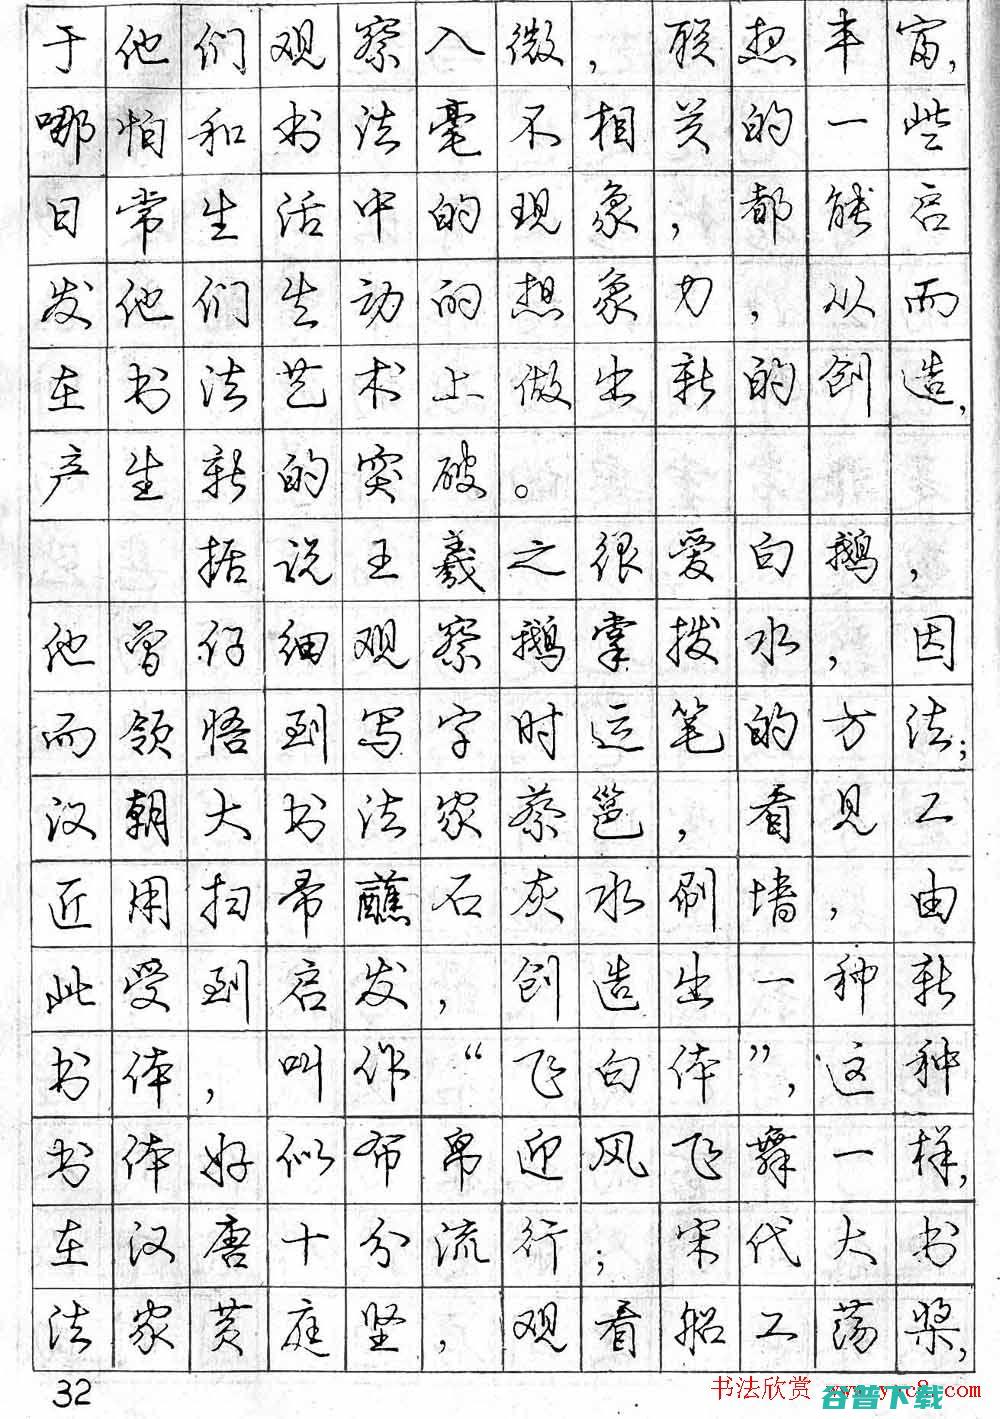 于他们观察入微，联想丰富，
哪怕和书法毫不相关的一些
日常生活中的现象，都能启
发他们生动的想象力，从而
在书法艺术上做出新的创造，
产生新的突破。
据说王羲之很爱白鹅，
他曾仔细观察鹅掌拨水，因
而领悟到写字时运笔的方法；
汉朝大书法家蔡邕，看见工
匠用扫帚蘸石灰水刷墙，由
此受到启发，创造出一种新
书体，叫作“飞白体”，这种
书体好似布帛迎风飞舞一样，
在汉唐十分流行；宋代大书
法家黄庭坚，观看船工荡桨，
32
书法欣赏
谷普下载